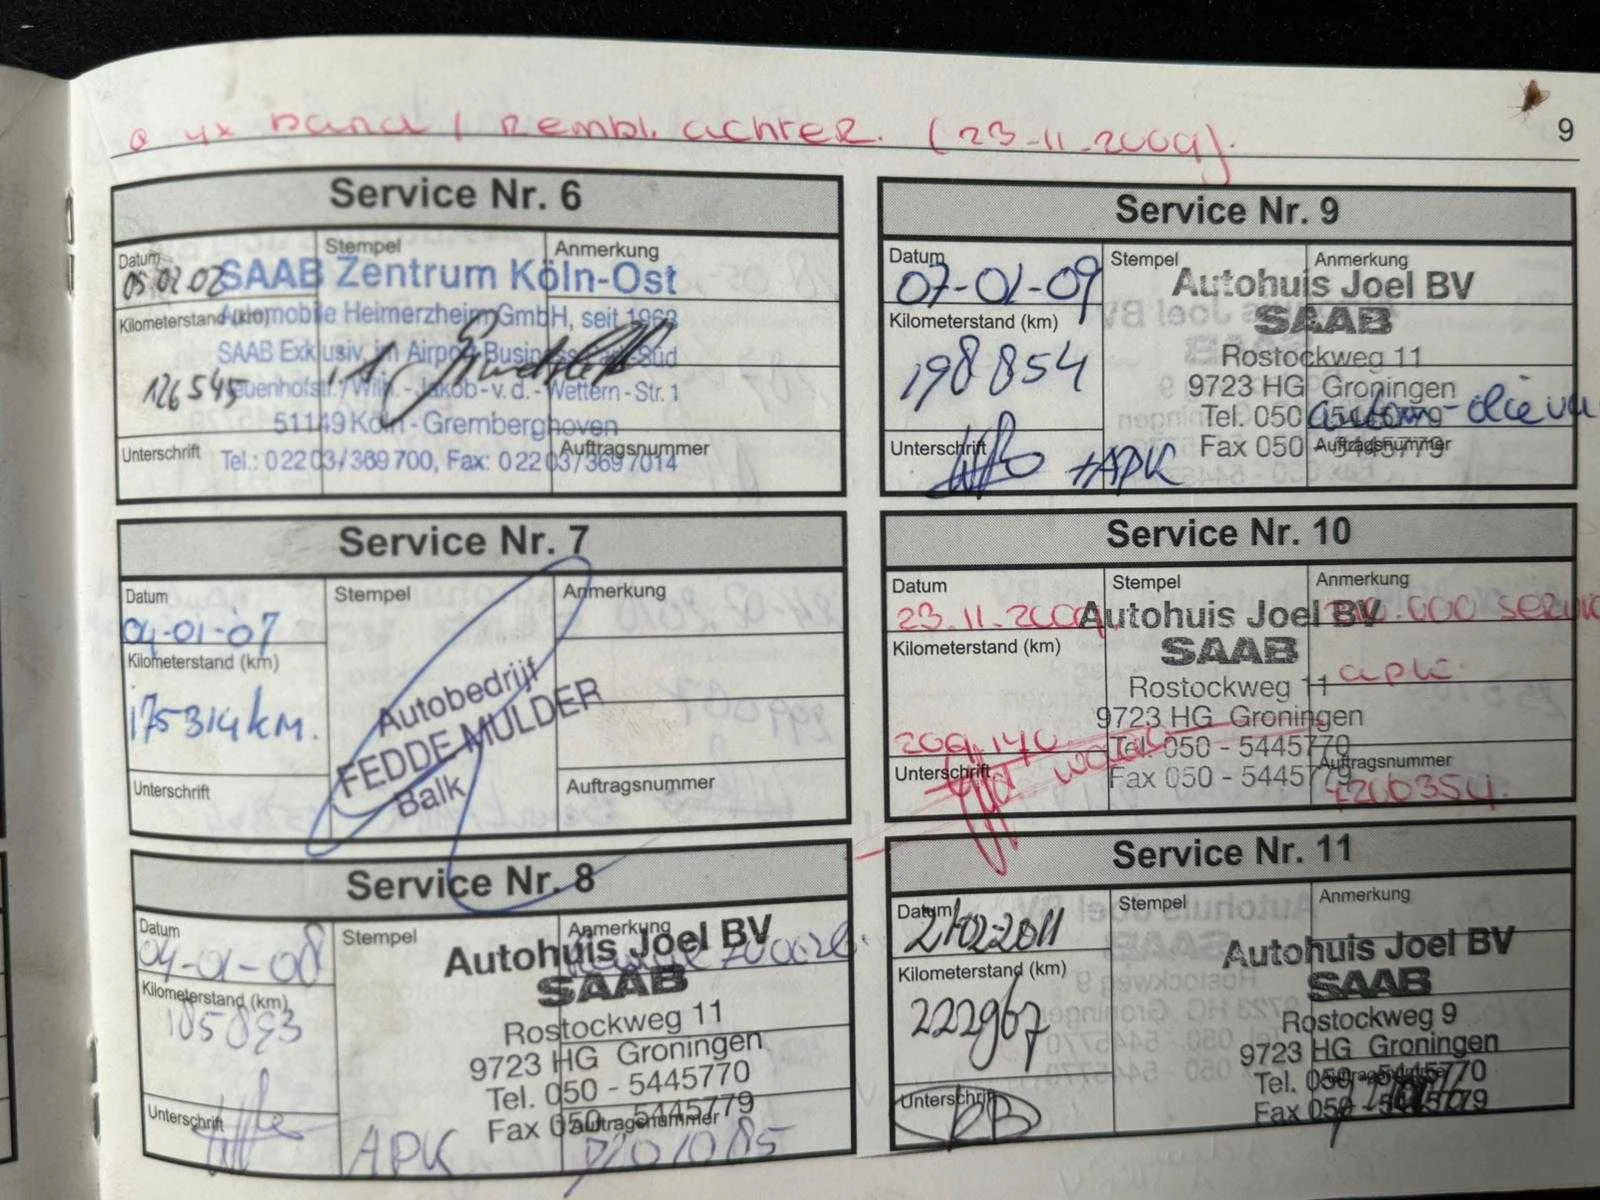 4x band / rembl. achter. (23-11-2009).
9
Service Nr. 6
Datum
05 02 02
Stempel
Anmerkung
SAAB Zentrum Köln-Ost
Kilometerstand (km)
Automobile Heimerzheim GmbH, seit 1968
SAAB Exklusiv im Airport Business Süd
126545
Neuenhofstr./Wilh.-Jakob-v.d.-Wettern-Str. 1
51149 Köln - Gremberghoven
Unterschrift
Auftragsnummer
Tel.: 02203/369700, Fax: 02203/3697014
Service Nr. 7
Datum
04-01-07
Stempel
Anmerkung
Kilometerstand (km)
175314km.
Autobedrijf
FEDDE MULDER
Balk
Unterschrift
Auftragsnummer
Service Nr. 8
Datum
04-01-08
Stempel
Anmerkung
Autohuis Joel BV
SAAB
Kilometerstand (km)
185893
Rostockweg 11
9723 HG Groningen
Tel. 050 - 5445770
Fax 050 - 5445779
Unterschrift
APK
Auftragsnummer
Service Nr. 9
Datum
07-01-09
Stempel
Anmerkung
Autohuis Joel BV
SAAB
Kilometerstand (km)
198854
Rostockweg 11
9723 HG Groningen
Tel. 050 - 5445779
Fax 050 - 5445779
Unterschrift
+APK
Auftragsnummer
Service Nr. 10
Datum
23.11.2009
Stempel
Anmerkung
Autohuis Joel BV
SAAB
Kilometerstand (km)
Rostockweg 11
apk.
9723 HG Groningen
209.140
Tel. 050 - 5445770
Fax 050 - 5445779
Unterschrift
Auftragsnummer
Service Nr. 11
Datum
21-02-2011
Stempel
Anmerkung
Autohuis Joel BV
SAAB
Kilometerstand (km)
222967
Rostockweg 9
9723 HG Groningen
Tel. 050 - 5445770
Fax 050 - 5445779
Unterschrift
Auftragsnummer